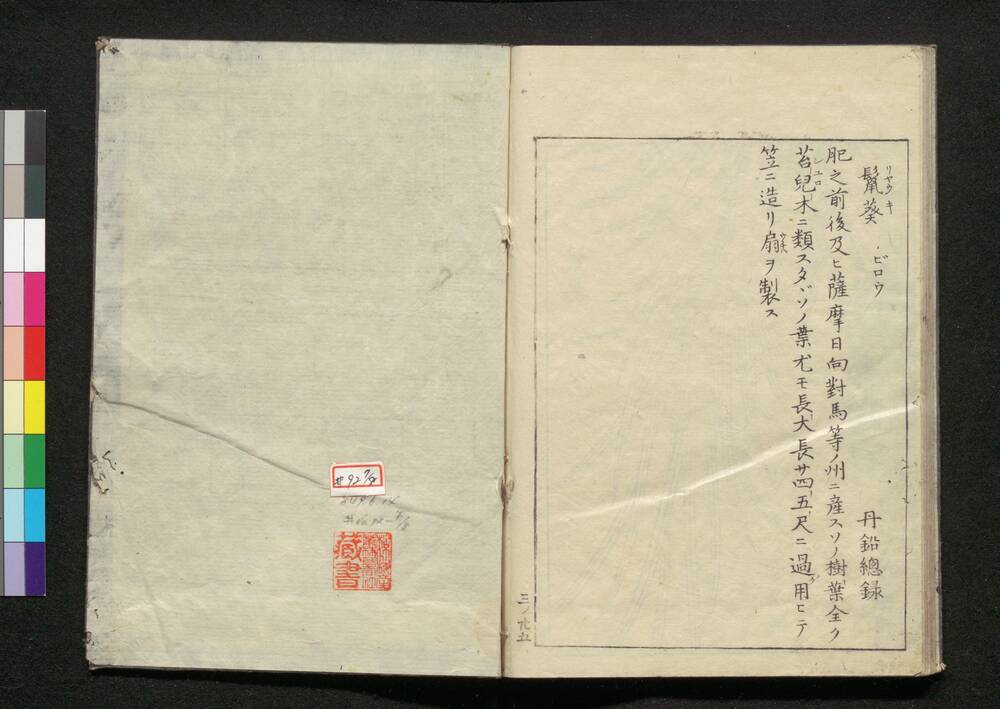 鬣葵 ビロウ 丹鉛總録
リヤウキ
肥之前後及ヒ薩摩日向對馬等ノ州ニ産スソノ樹葉全ク
苔兒木ニ類スタヾソノ葉尤モ長大長サ四五尺ニ過ク用ヒテ
シユロ
笠ニ造リ扇ヲ製ス
三ノ廿五
藏書